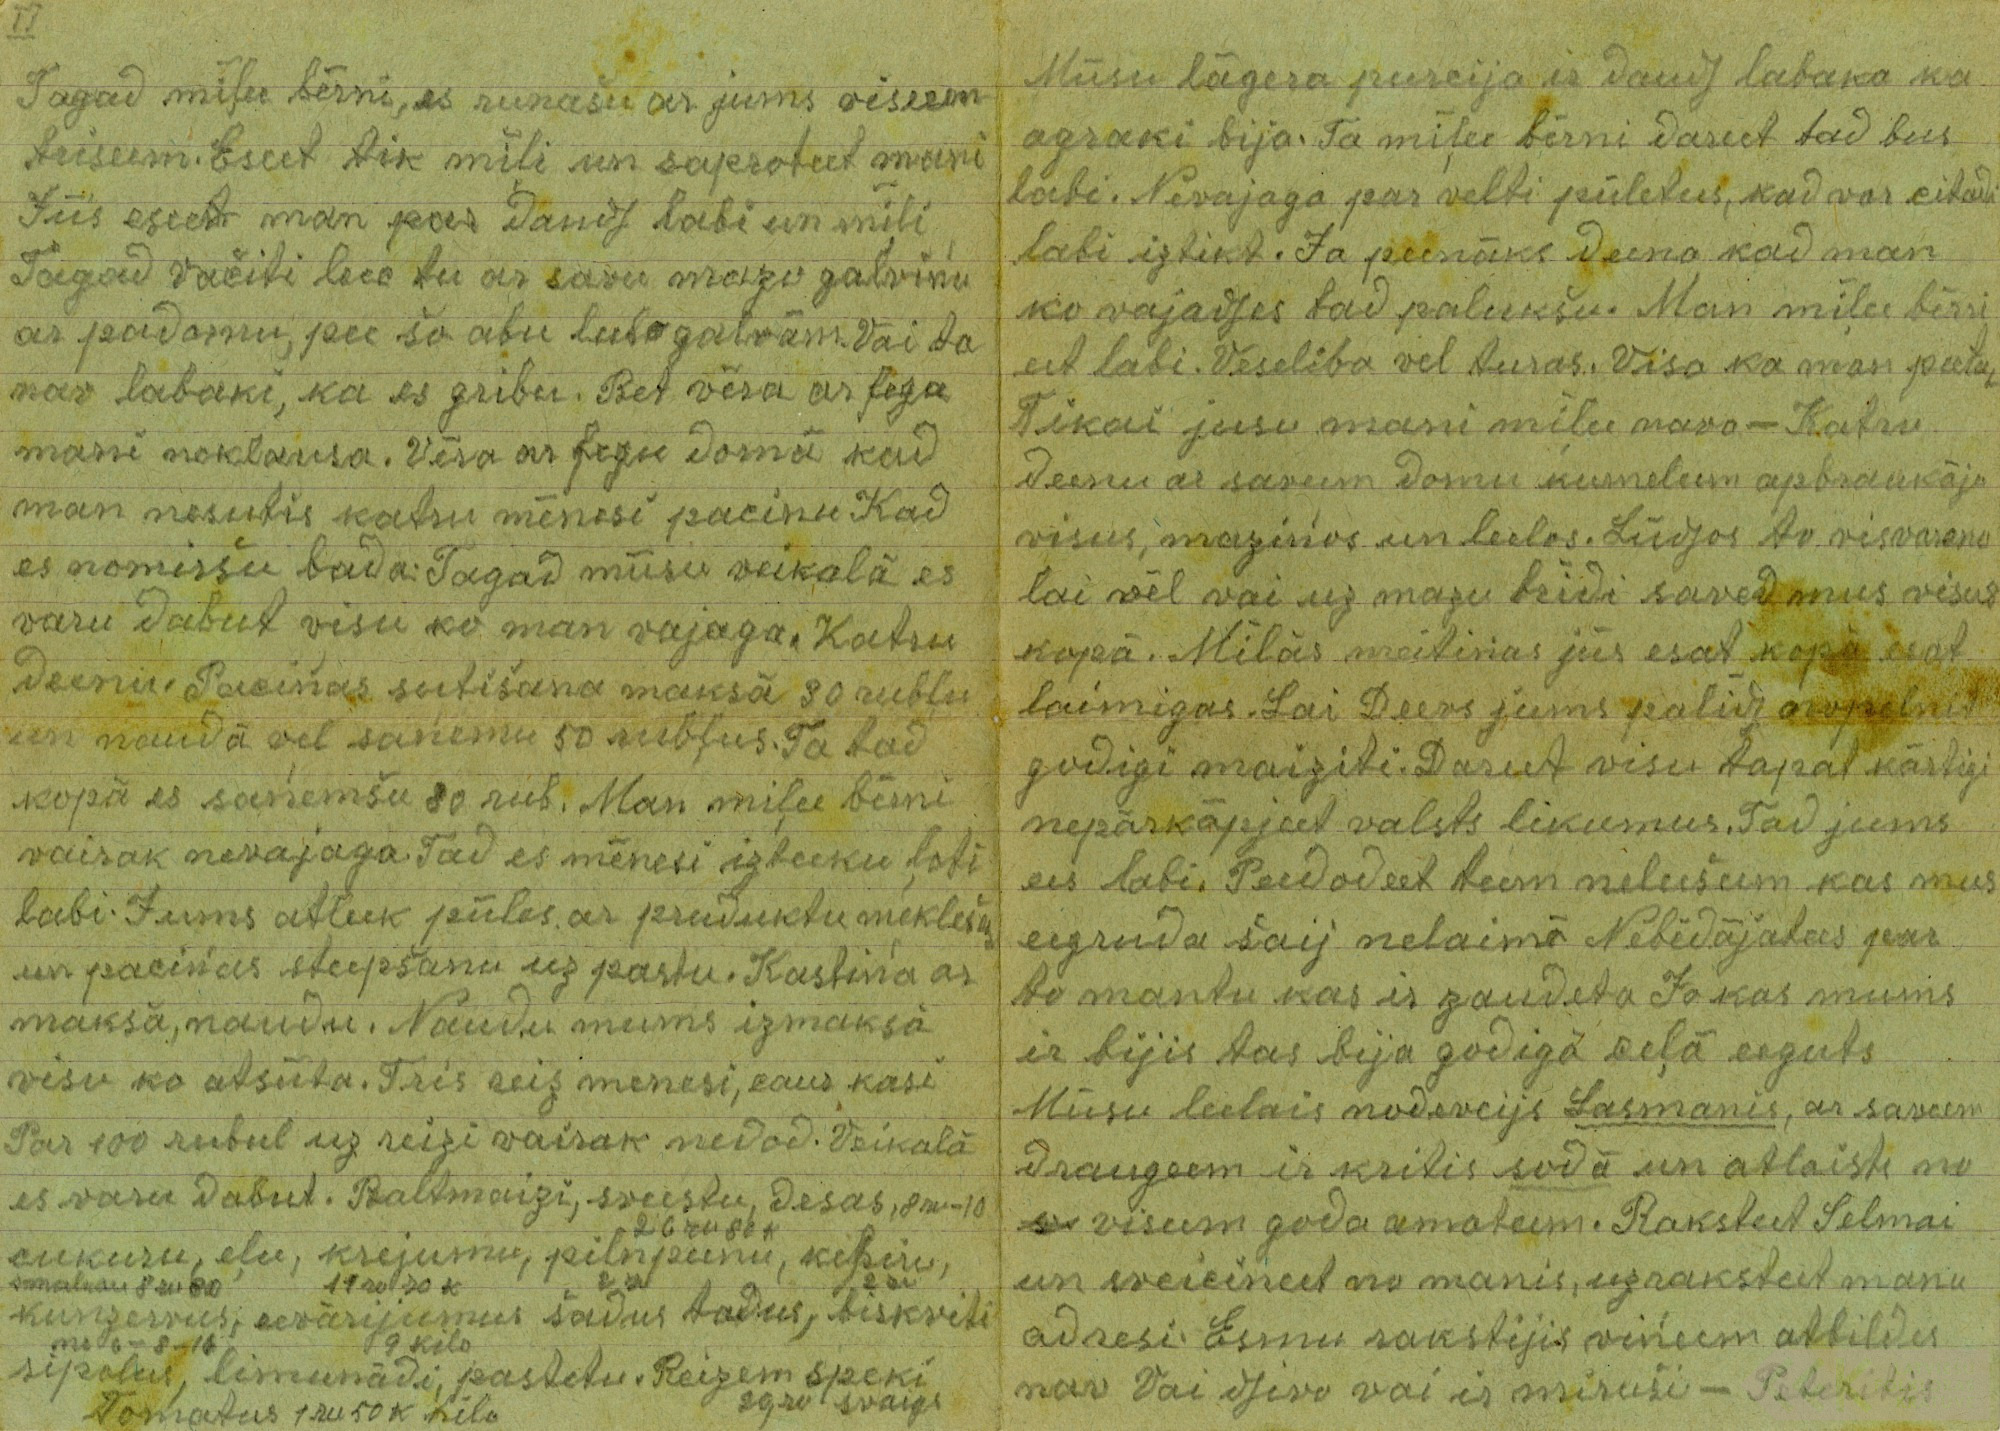 II
Tagad miļee bērni, es runašu ar jums viseem
triseem. Eseet tik mīli un saproteet mani
Jūs eseet man par daudſ labi un mīli
Tagad Vačiti leec tu ar savu mazo galviņu
ar padomu, pee šo abu leelo galvām. Vai ta
nav labaki, ka es gribu. Bet vēra ar ſega
mani noklausa. Vēra ar ſegu domā kad
man nesutis katru mēnesi paciņu Kad
es nomiršu bada. Tagad mūsu veikalā es
varu dabut visu ko man vajaga. Katru
deenu. Paciņas sutišana maksā 30 rubļu
un naudā vel saņemu 50 rubļus. Ta tad
kopā es saņemšu 80 rub. Man miļee bērni
vairak nevajaga. Tad es mēnesi izteeku ļoti
labi. Jums atleek pūles ar produktu meklešan
un paciņas steepšanu uz pastu. Kastiņa ar
maksā, naudu. Naudu mums izmaksā
visu ko atsūta. Trīs reiz menesi, caur kasi
Par 100 rubul uz reizi vairak nedod. Veikalā
es varu dabut. Baltmaizi, sveestu, desas, 8 ru-10
26 ru 80 k
cukuru, eļu, krejumu, pilnpeenu, kefiru,
smalkau 8 ru 80 11 ru 70 k 2 ru 2 ru
kunzervus, eevārijumus šadus tadus, biskviti
no 6-8-16 9 kilo
sipolus, limunādi, pastetu. Reizem speķi
Tomatus 1 ru 50 k kilo 29 ru svaigs
Mūsu lāgera pureija ir daudſ labaka ka
agraki bija. Ta miļee bērni dareet tad bus
labi. Nevajaga par velti pūletus, kad var citadi
labi iztikt. Ja peenāks deena kad man
ko vajadſes tad palukšu. Man milee bērni
eet labi. Veseliba vel turas. Visa ka man peeteek
Tikai jusu mani mīlee nava – Katru
deenu ar saveem domu kumeleem apbraukāju
visus, maziņos un leelos. Lūdſos to visvareno
lai vēl vai uz mazu brīdi saved mus visus
kopā. Mīlās meitiņas jūs esat kopā esat
laimigas. Lai Deevs jums palīdz nopelnit
godigi maiziti. Dareet visu tapat kārtigi
nepārkāpjeet valsts likumus. Tad jums
ees labi. Peedodeet teem neleešeem kas mus
eegruda šaij nelaimē Nebēdājatees par
to mantu kas ir zaudeta Ja kas mums
ir bijis tas bija godigā ceļā eeguts
Mūsu leelais nodeveijs Lasmanis, ar saveem
draugeem ir kritis sodā un atlaisti no
viseem goda amateem. Raksteet Selmai
un sveicineet no manis, uzraksteet manu
adresi. Esmu rakstijis viņeem atbildes
nav Vai dſivo vai ir miruši – Peteritis